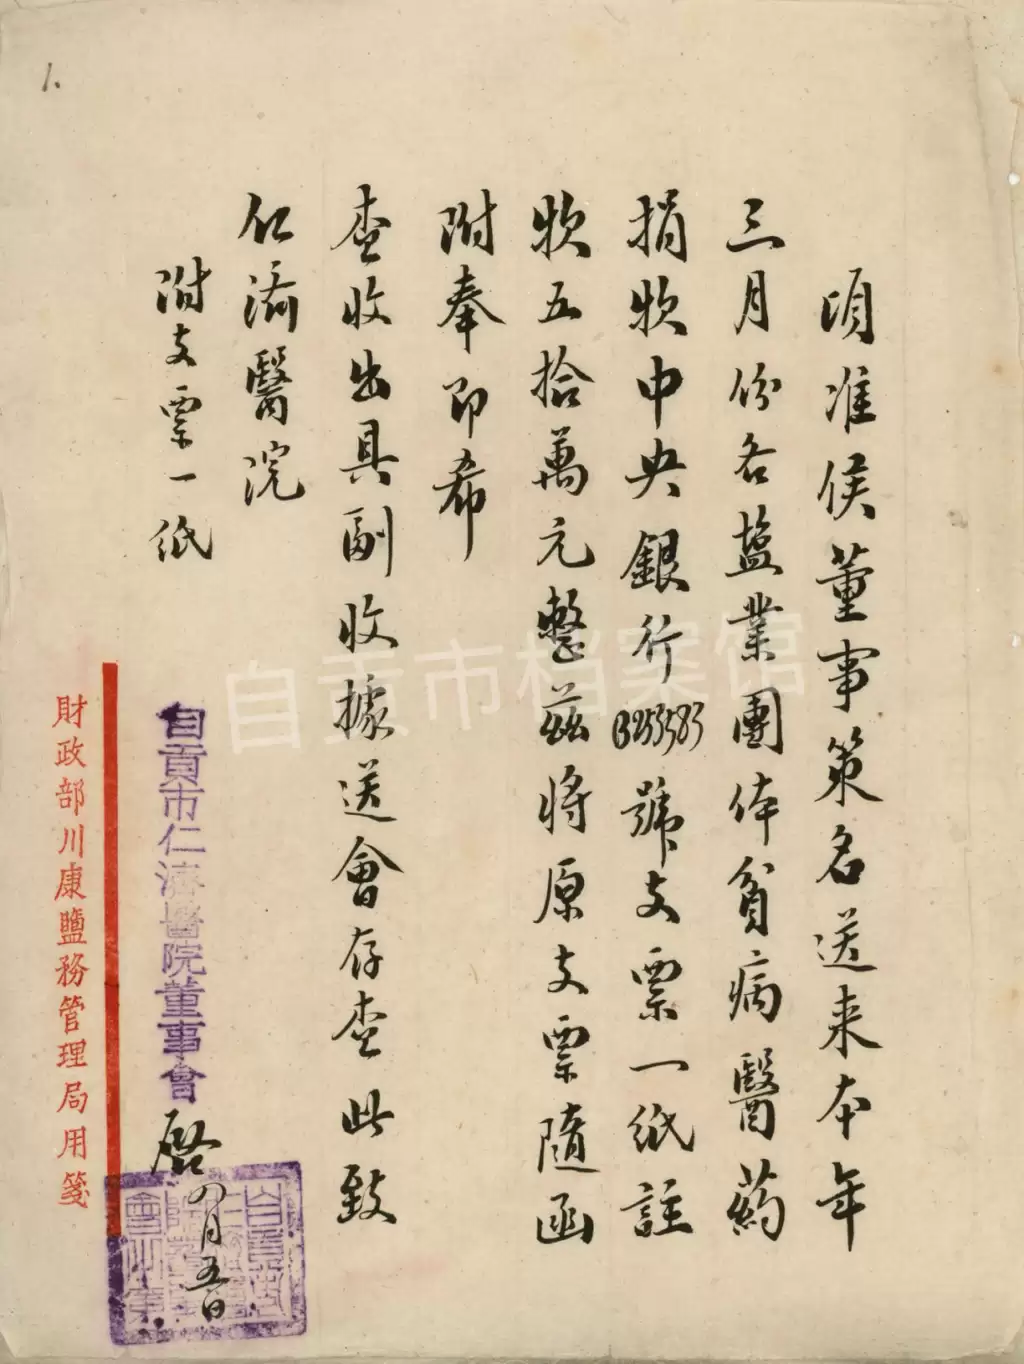 頃准侯董事策名送来本年
三月份各盐業團体貧病醫药
捐款中央銀行B253583號支票一紙註
款五拾萬元整茲將原支票隨函
附奉即希
查收出具副收據送會存查此致
仁濟醫院
附支票一紙
自貢市仁濟醫院董事會 啓 四月五日
財政部川康鹽務管理局用箋
自贡市档案馆
1.